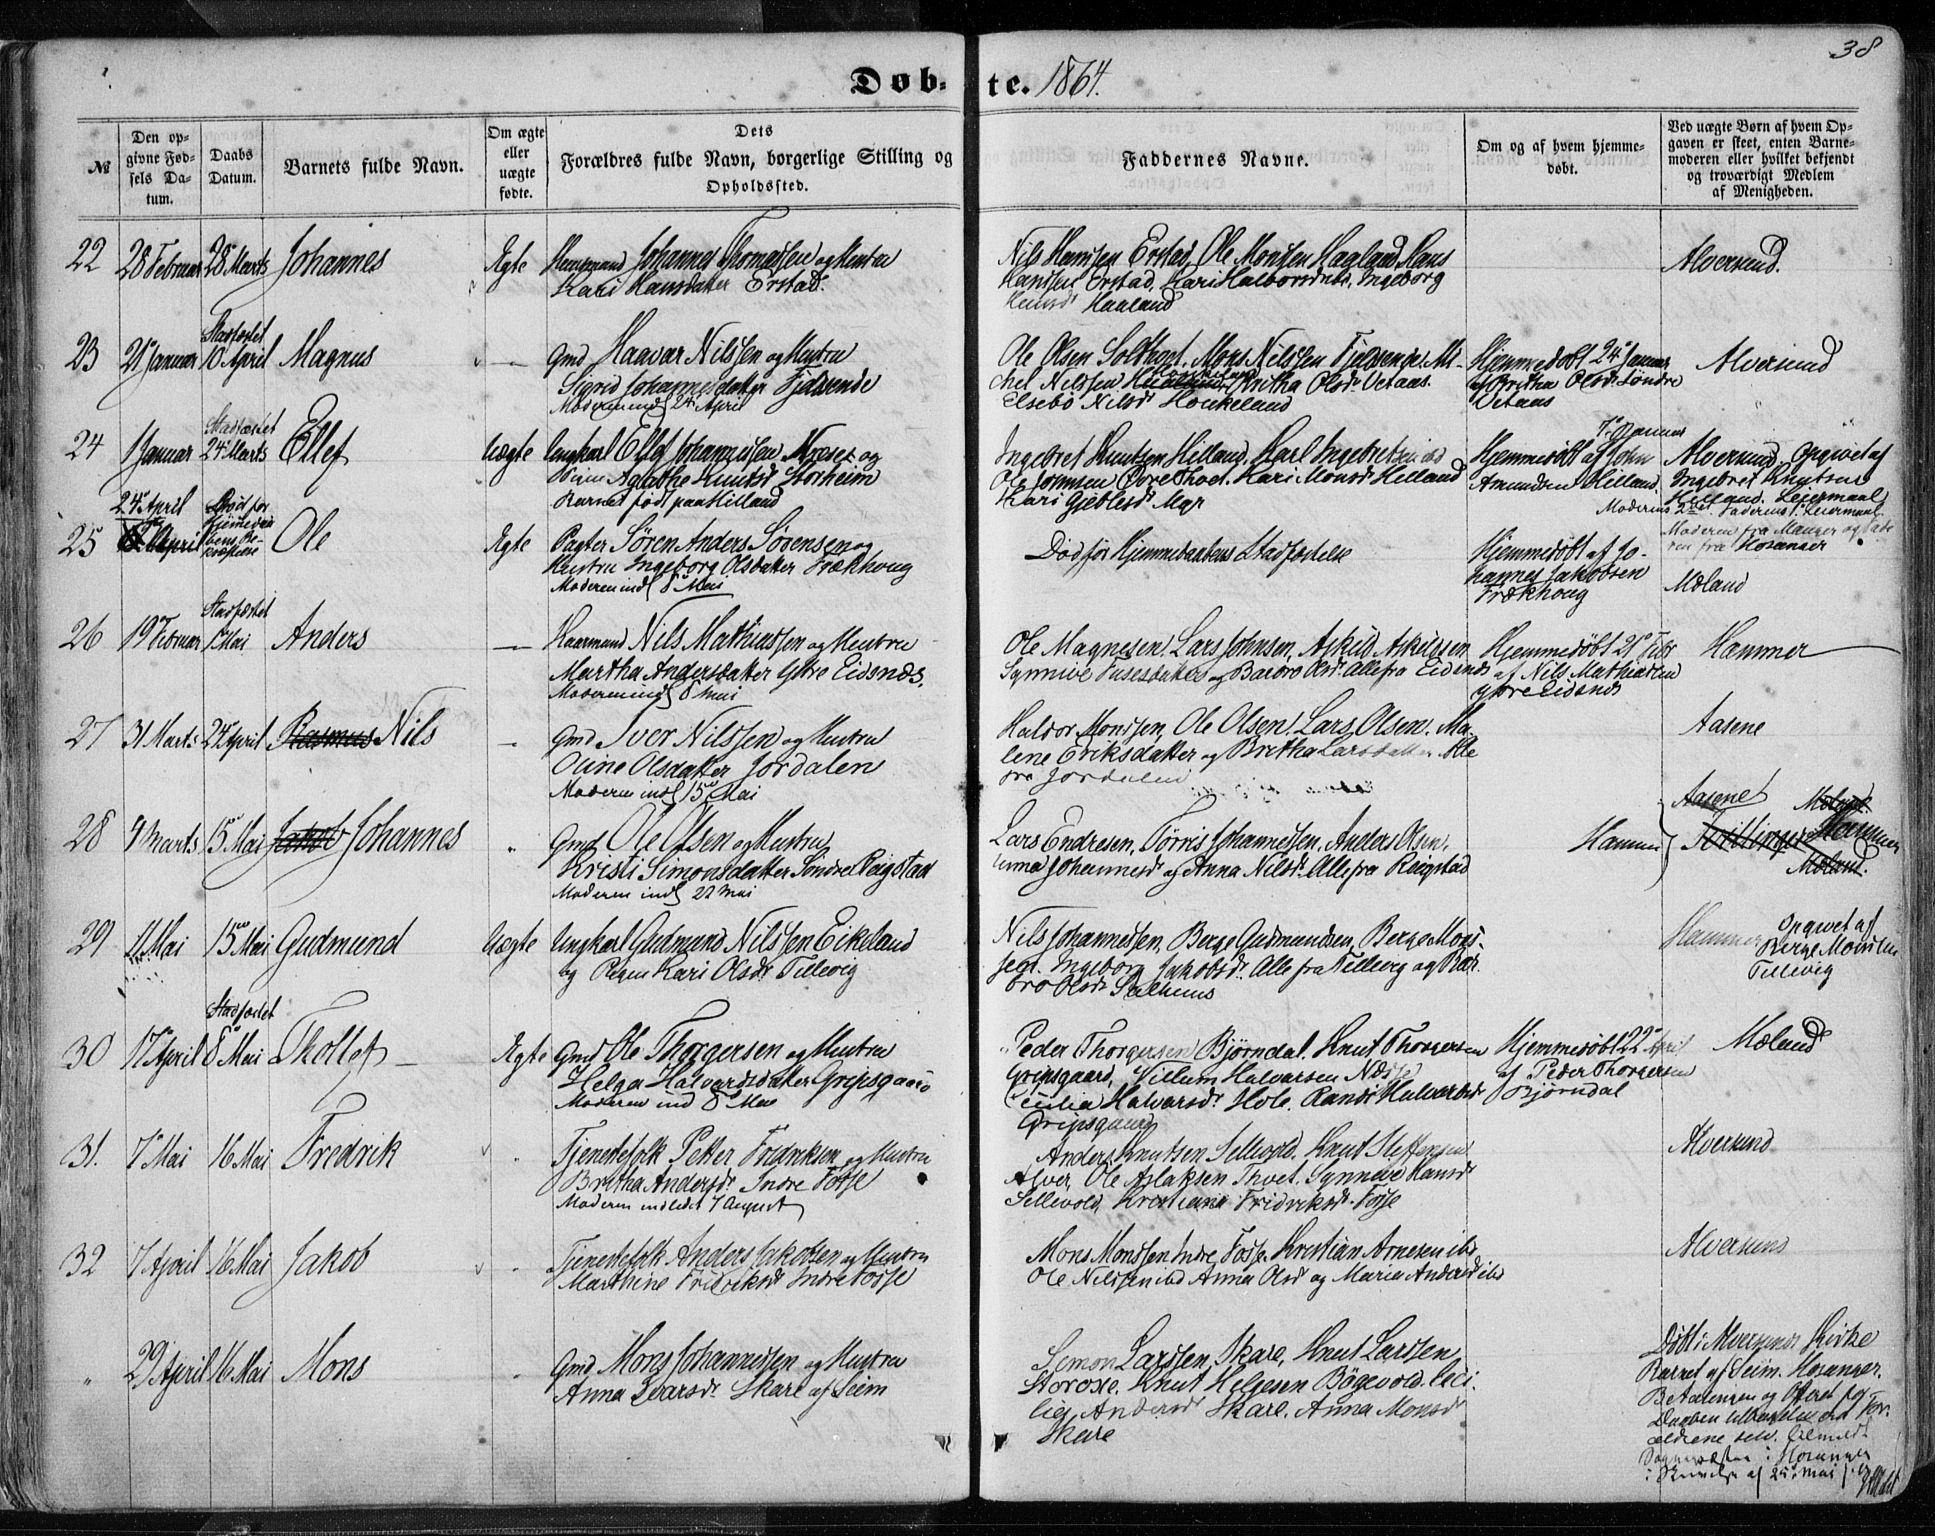 38
Døb-te. 1864.
№
Den opgivne Fødsels Datum.
Daabs Datum.
Barnets fulde Navn.
Om ægte eller uægte fødte.
Dets Forældres fulde Navn, borgerlige Stilling og Opholdssted.
Faddernes Navne.
Om og af hvem hjemmedøbt.
Ved uægte Børn af hvem Opgaven er skeet, enten Barnemoderen eller hvilket bekjendt og troværdigt Medlem af Menigheden.
22 28 Februar 28 Marts Johannes Ægte Johannes Thomassen og Hustru
Kari Hansdatter Erstad.
Nils Hanssen Erstad, Ole Monsen Hagland, Hans
Hanssen Erstad, Kari Halvorsdatr, Ingeborg
Haaland
Alversund.
Stadfæstet
23 21 Januar 10 April Magnus — Gmd Haavar Nilssen og Hustru
Sigrid Johannesdatter Fjelsende
Moderen indl 24 April
Ole Olsen Soltvedt. Mons Nilssen Fjelsende. Mi-
chel Nilssen Britha Olsdr Vetaas.
Elsebø Nilsdr Houkeland
Hjemmedøbt 24 Januar
af Britha Olsdr Søndre
Vetaas
Alversund
Stadfæstet
24 1 Januar 24 Marts Ellef Uægte Ungkarl Ellef Johannissen og
Pigen Agathe Knutsdr Storheim
Barnet født paa Hilland
Ingebret Knutsen Hilland. Karl Ingebretsen ibd
Ole Øvre Thvet. Kari Monsdr Hilland
Kari Gjeblesdr
7 Januar
Hjemmedøbt af John
Amundsen Hilland
Alversund. Opgivet af
Ingebret Knutsen
Hilland. Leiermaal
Moderens 2det Faderens 1 Leiermaal.
Moderen fra Manger og Fade-
ren fra Hosanger
24 April
25 April Død for
Hjemmedaa-
bens Be-
kræftelse
Ole Ægte Pagter Sören Anders Sörensen og
Hustru Ingeborg Olsdatter Trækhoug
Moderen indl 8 Mai
Død før Hjemmedaabens Stadfæstelse
Hjemmedøbt af Jo-
hannes Jakobsen
Trækhoug
Mæland
Stadfæstet
26 19 Februar 1 Mai Anders — Huusmand Nils Mathiassen og Hustru
Martha Andersdatter Ytre Eidsnæs.
Moderen indl 8 Mai
Ole Magnesen. Lars Johnsen, Askild Askildsen
Synnive og Barbro Olsdr. Alle fra Eidsnæs
Hjemmedøbt 21 Febr
af Nils Mathiassen
ytre Eidsnæs
Hammer
27 31 Marts 24 April Rasmus Nils — Gmd Iver Nilssen og Hustru
Oline Olsdatter Jordalen
Moderen indl 15 Mai
Haldor Monssen, Ole Olsen. Lars Olsen. Ma-
lene Eriksdatter og Britha Larsdatter. Alle
fra Jordalen
Aasene
28 4 Marts 15 Mai Jakob Johannes " Gmd Ole Olsen og Hustru
Kristi Simonsdatter Søndre Reigstad
Moderen indl 22 Mai
Lars Endresen, Tørris Johannessen, Anders Olsen.
Johannesdr og Anna Nilsdr. Alle fra Reigstad
Hammer
Aasene Mæland
Hammer
Mæland
29 11 Mai 15 Mai Gudmund Uægte Ungkarl Gudmund Nilssen Eikeland
og Pigen Kari Olsdr Tellevig
Nils Johannessen, Berge Gudmundsen, Berge Mons-
sen. Ingeborg Jakobsdr. Alle fra Tellevig og Bar-
bro Olsdr Salhuus
Hammer
Opgivet af
Berge Monssen
Tellevig
Stadfæstet
30 17 April 8 Mai Thollef Ægte Gmd Ole Thorgersen og Hustru
Helga Halvardsdatter Gripsgaard
Moderen ind 8 Mai
Peder Thorgersen Bjørndal. Knut Thorgersen
Gripsgaard, Villum Halvarsen Næsse
Cicilia Halvarsdr Hole. Randi Halvarsdr
Gripsgaard
Hjemmedøbt 22 April
af Peder Thorgersen
Bjørndal
Mæland
31. 7 Mai 16 Mai Fredrik " Tjenestefolk Petter Fredriksen og Hustru
Britha Andersdr Indre Fosse
Moderen indledet 7 August
Anders Knutsen Sellevold. Knut Steffensen
Alver, Ole Aslaksen Thvet. Synneve Hansdr
Sellevold, Kristiane Fridriksdr. Fosse
Alversund
32 7 April 16 Mai Jakob " Tjenestefolk Anders Jakobsen og Hustru
Marthine Fredriksdr Indre Fosse
Mons Monssen Indre Fosse Kristian Arnesen ibd,
Ole Nilssen ibd Anna Olsdr og Maria Andersdr ibd
Alversund
" 29 April 16 Mai Mons " Gmd Mons Johannessen og Hustru
Anna Ivarsdr Skare af Seim
Simon Larssen Skare, Knut Larssen
Storoxe. Knut Helgesen Bøgevold. Ceci-
lie Andersdr Skare. Anna Monsdr
Skare
Døbt i Alversunds Kirke
Barnet af Seim. Hosanger.
Betalingen og Offeret for
Daaben For-
ældrene selv.
i Hosanger
i Skrivelse af 25 Mai